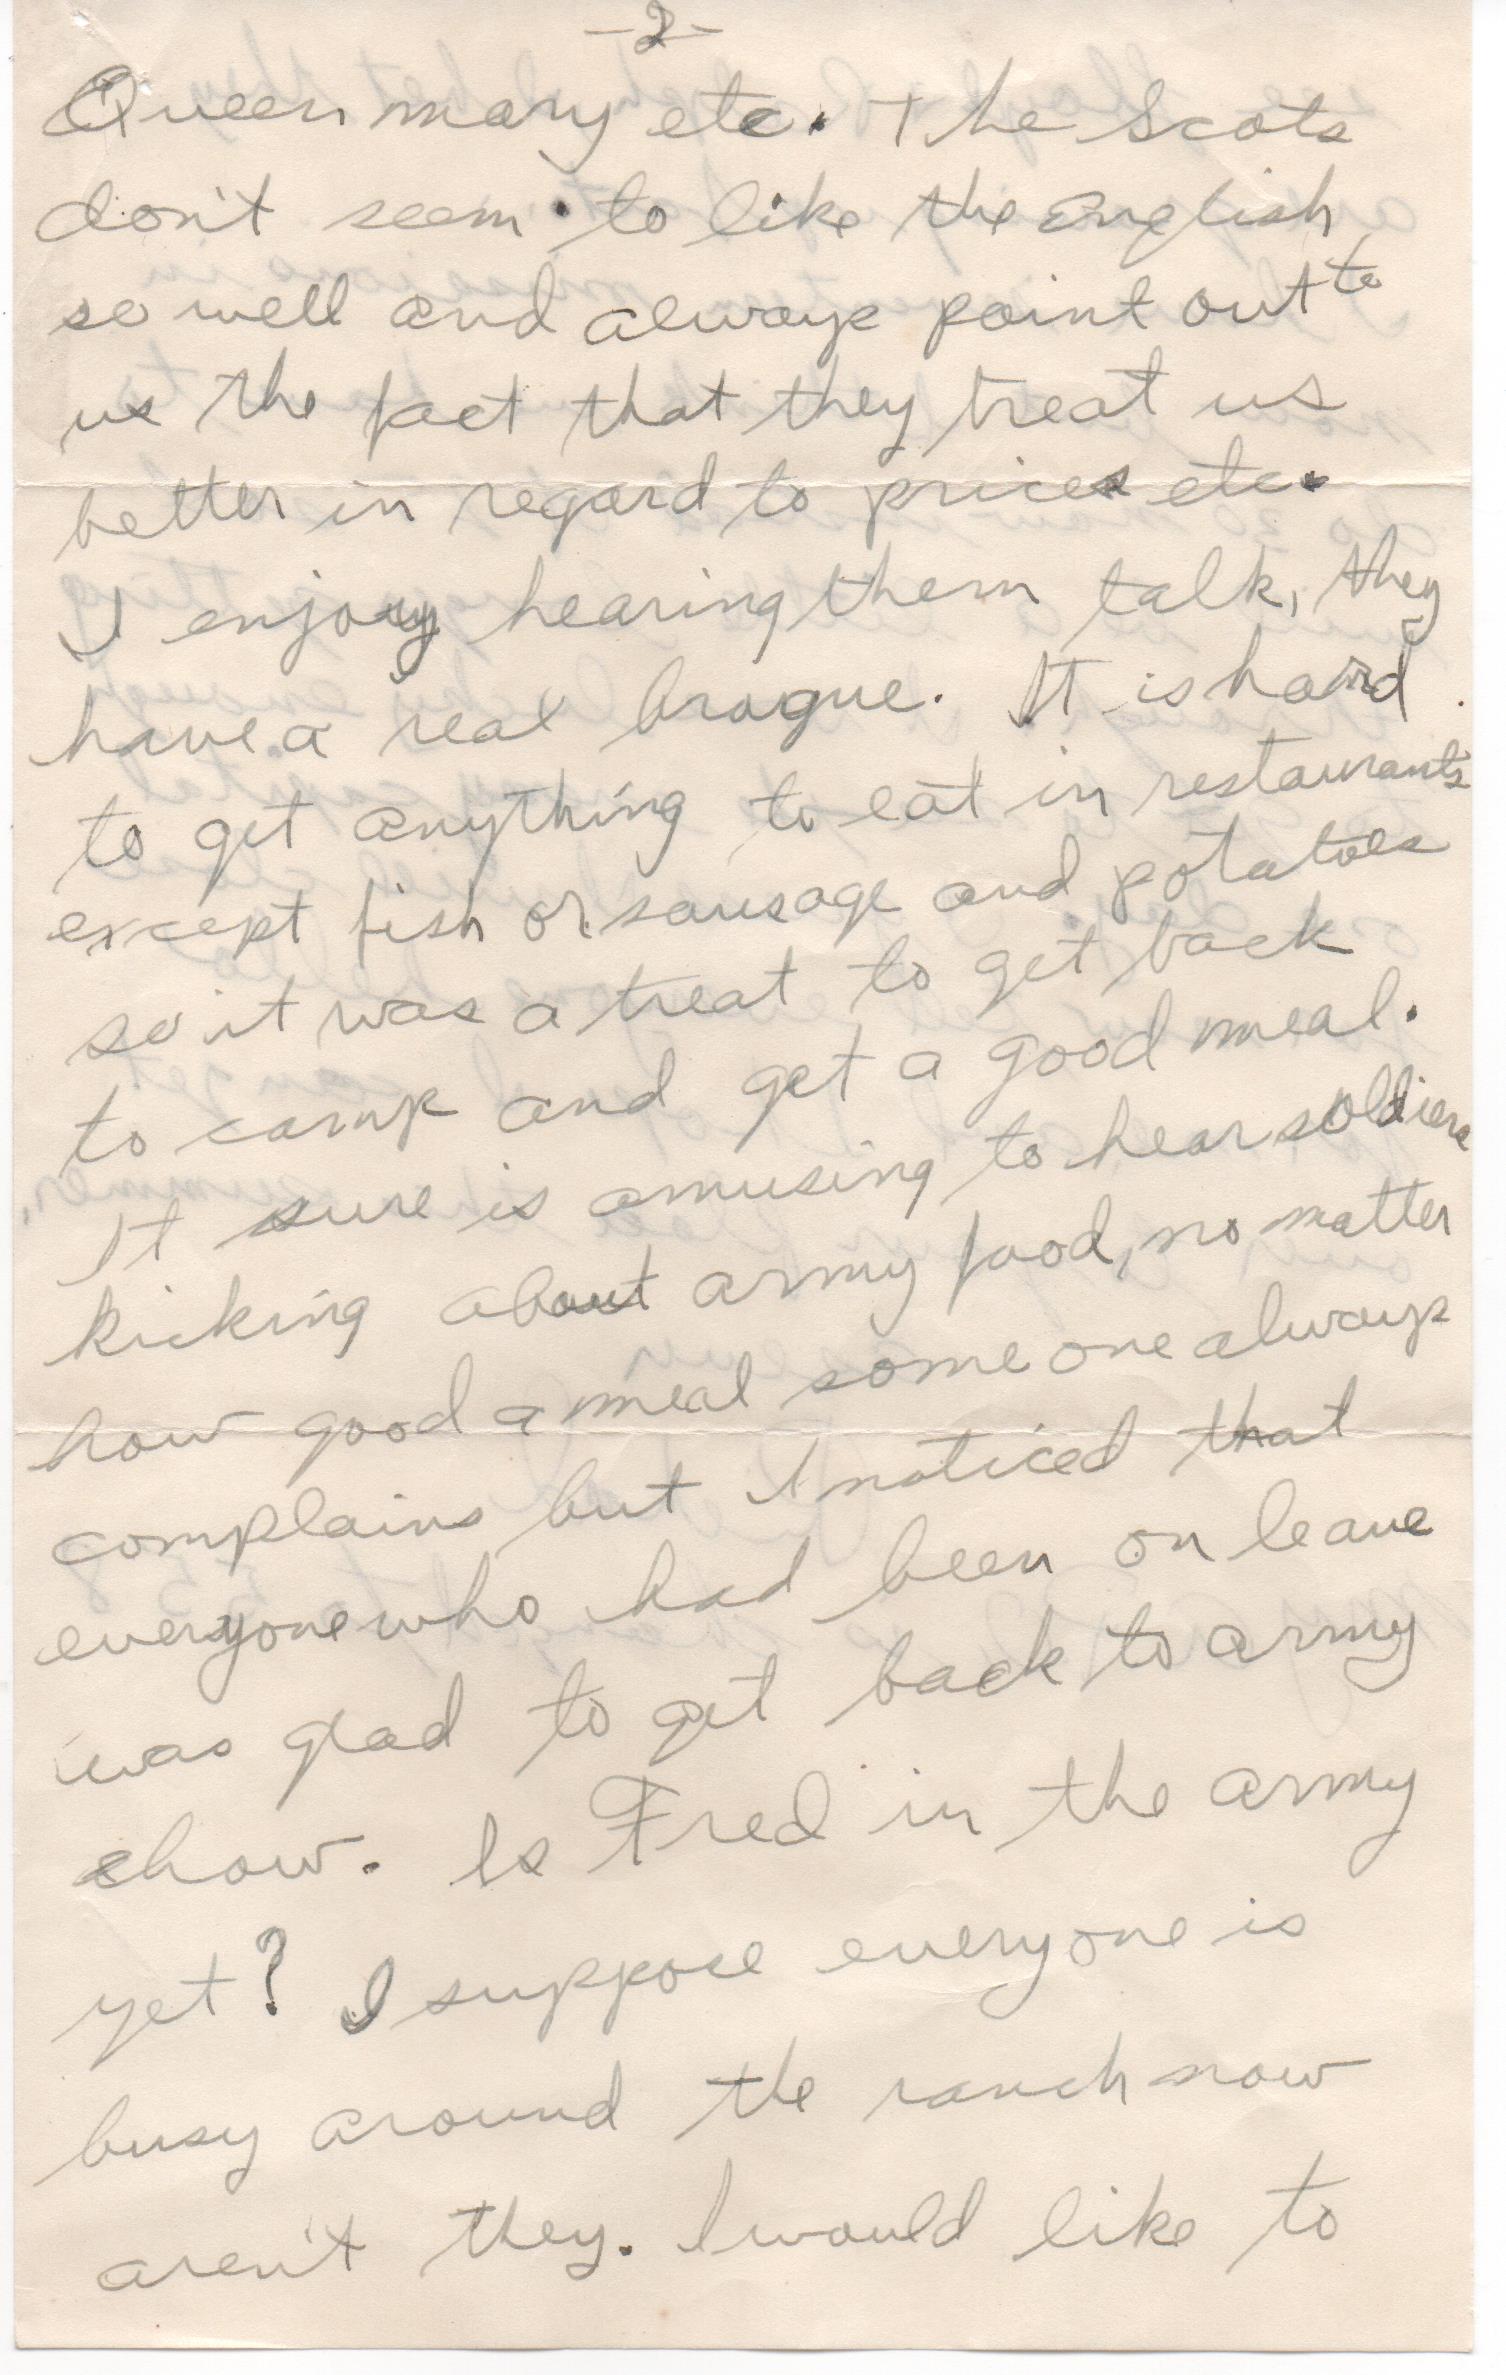 -2-
Queen mary etc. The Scots
don't seem to like the English
so well and always point out to
us the fact that they treat us
better in regard to prices etc.
I enjoy hearing them talk, they
have a real brogue. It is hard
to get anything to eat in restaurants
except fish or sausage and potatoes
so it was a treat to get back
to camp and get a good meal.
It sure is amusing to hear soldiers
kicking about army food, no matter
how good a meal some one always
complains but I noticed that
everyone who had been on leave
was glad to get back to army
chow. Is Fred in the army
yet? I suppose everyone is
busy around the ranch now
aren't they. I would like to